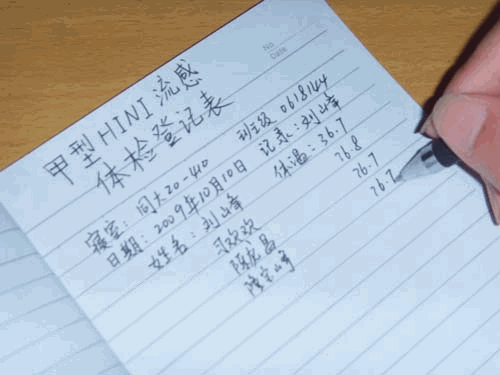 No
Date
甲型HINI流感
体检登记表
寝室：同大20-410 班级 0618144
日期：2009年10月10日 记录：刘山峰
姓名：刘山峰 体温：36.7
习欢欢 36.8
陈宏昌 36.7
36.7